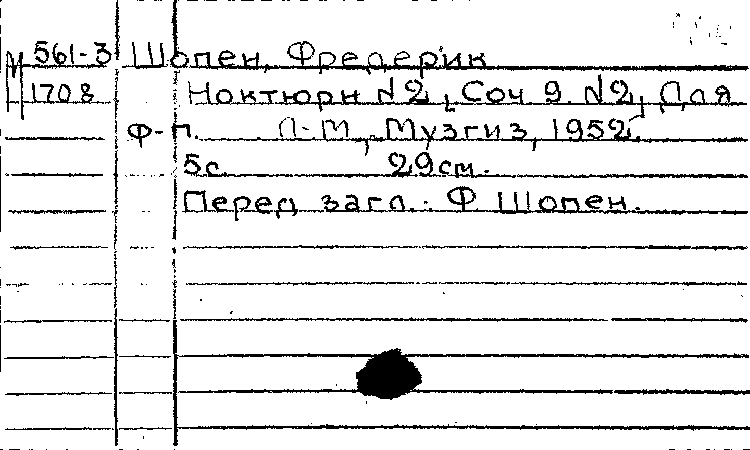 М 561-3 Шопен, Фредерик
1708 Ноктюрн №2, Соч 9. №2, Для
ф-п. Л-М, Музгиз, 1952.
5с. 29см.
Перед загл.: Ф Шопен.